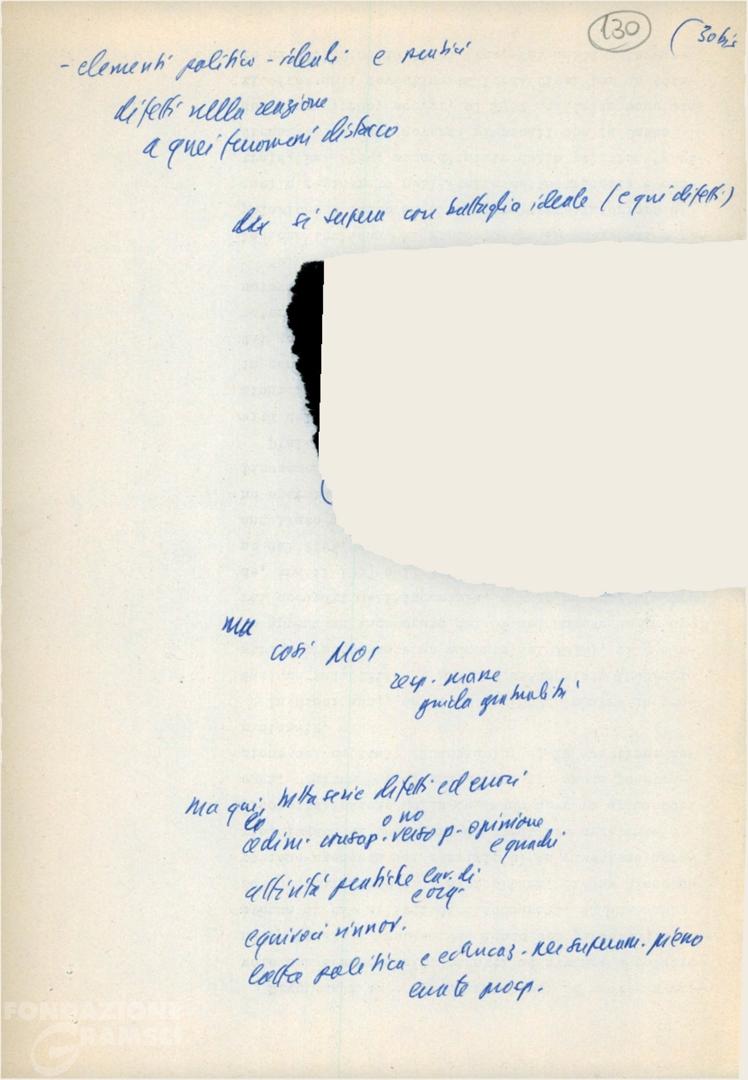 130
(30bis
- elementi politico-ideali e pratici
difetti nella reazione
a quei fenomeni distacco
si supera con battaglia ideale (e qui difetti)
ma
così
resp. masse
guida
ma qui, tutta serie difetti ed errori
o no
verso p. opinione
e quadri
attività pratiche
equivoci rinnov.
lotta politica e educaz. per superam. pieno
errate prosp.
FONDAZIONE
GRAMSCI